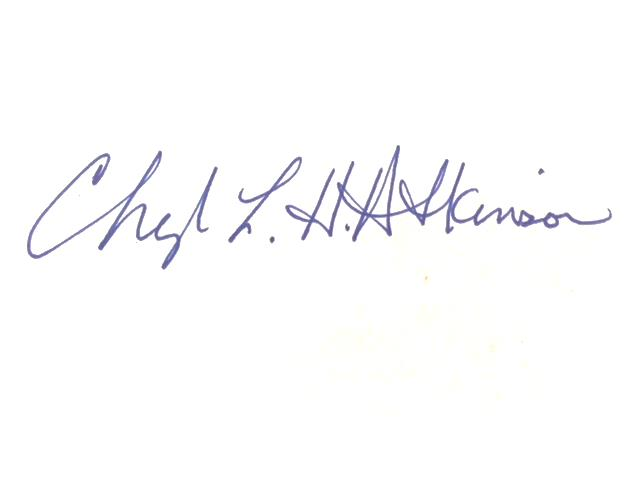 Cheryl L. H. Atkinson